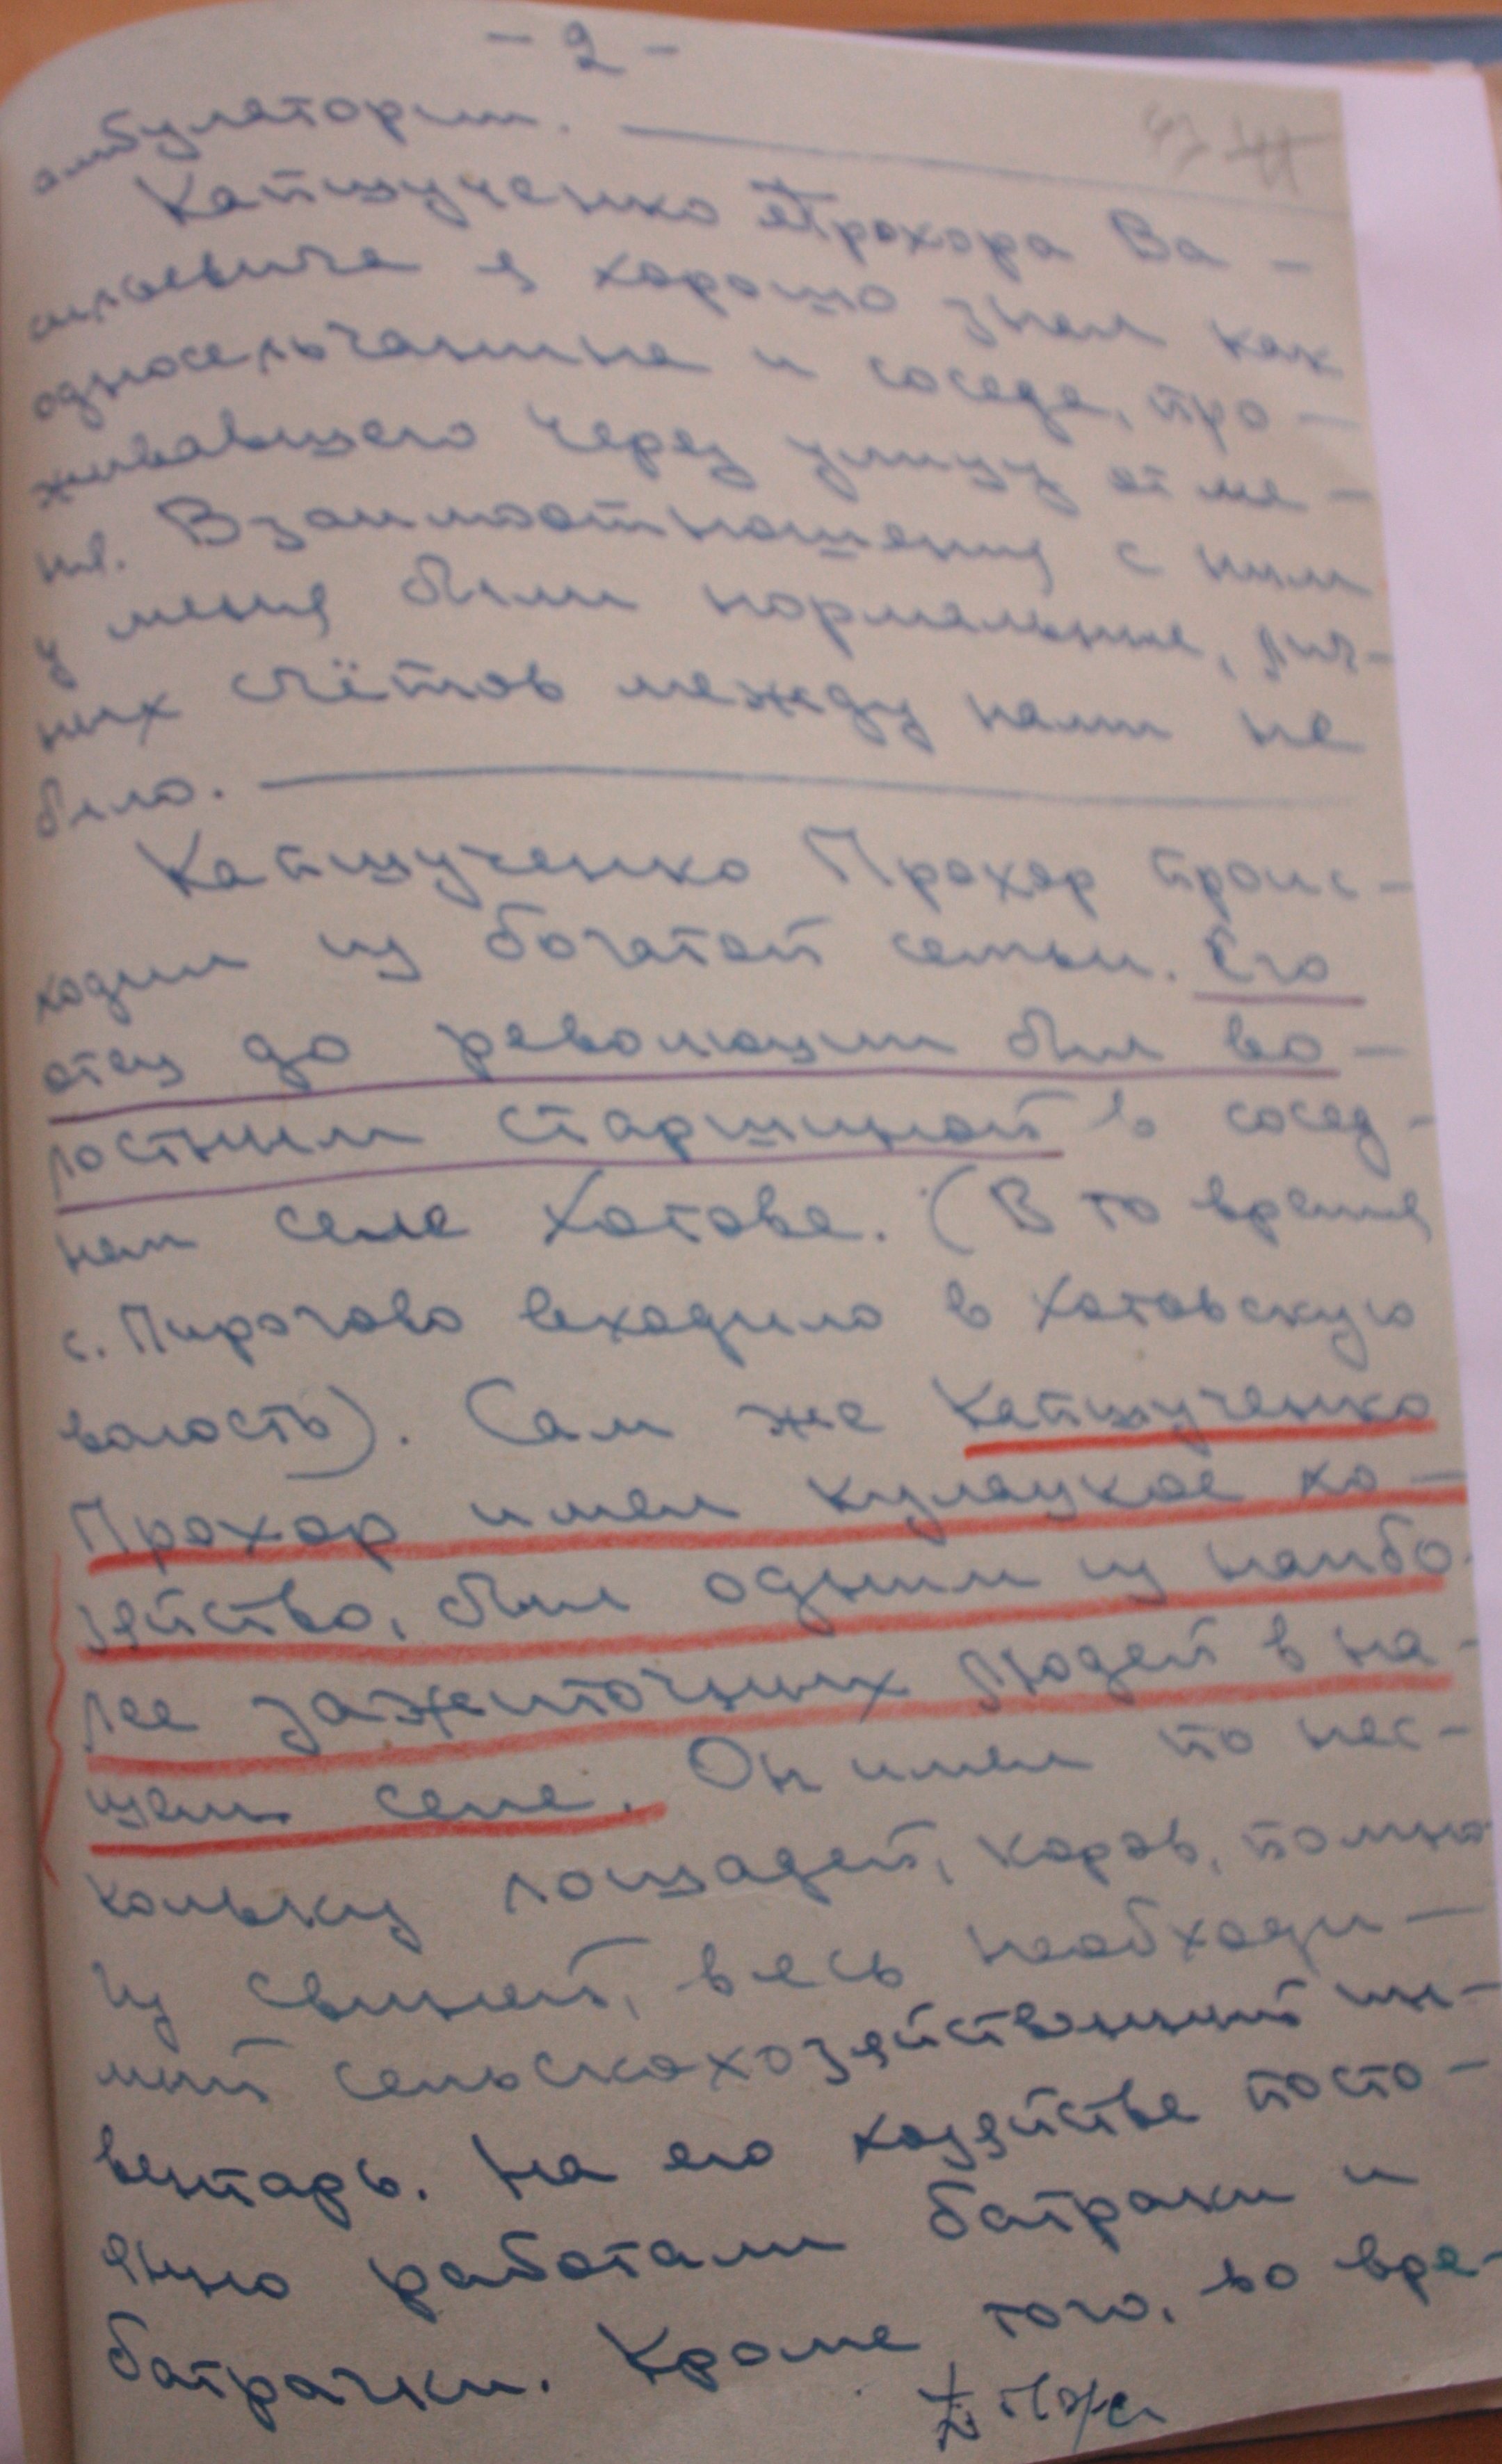 - 2 -
амбулатории.
Капшученко Прохора Ва-
сильевича я хорошо знал как
односельчанина и соседа, про-
живавшего через улицу от ме-
ня. Взаимоотношения с ним
у меня были нормальные, лич-
ных счётов между нами не
было.
Капшученко Прохор проис-
ходил из богатой семьи. Его
отец до революции был во-
лостным старшиной в сосед-
нем селе Хотове. (В то время
с. Пирогово входило в Хотовскую
волость). Сам же Капшученко
Прохор имел кулацкое хо-
зяйство, был одним из наибо-
лее зажиточных людей в на-
шем селе. Он имел по нес-
кольку лошадей, коров, помно-
гу свиней, весь необходи-
мый сельскохозяйственный ин-
вентарь. На его хозяйстве посто-
янно работали батраки и
батрачки. Кроме того, во вре-